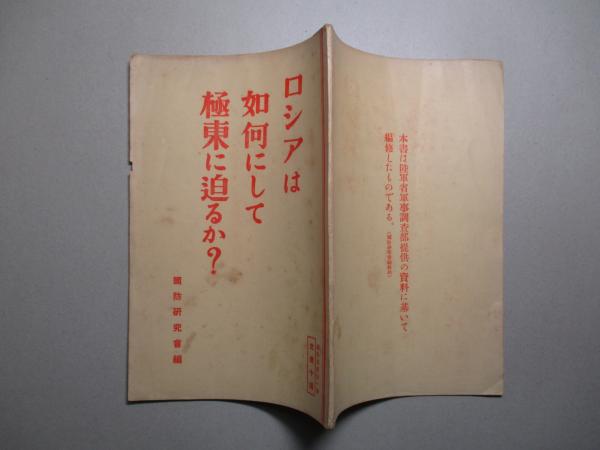 ロシアは
如何にして
極東に迫るか？
國防硏究會編
本書は陸軍省軍事調査部提供の資料に基いて
編修したものである。
定價十錢